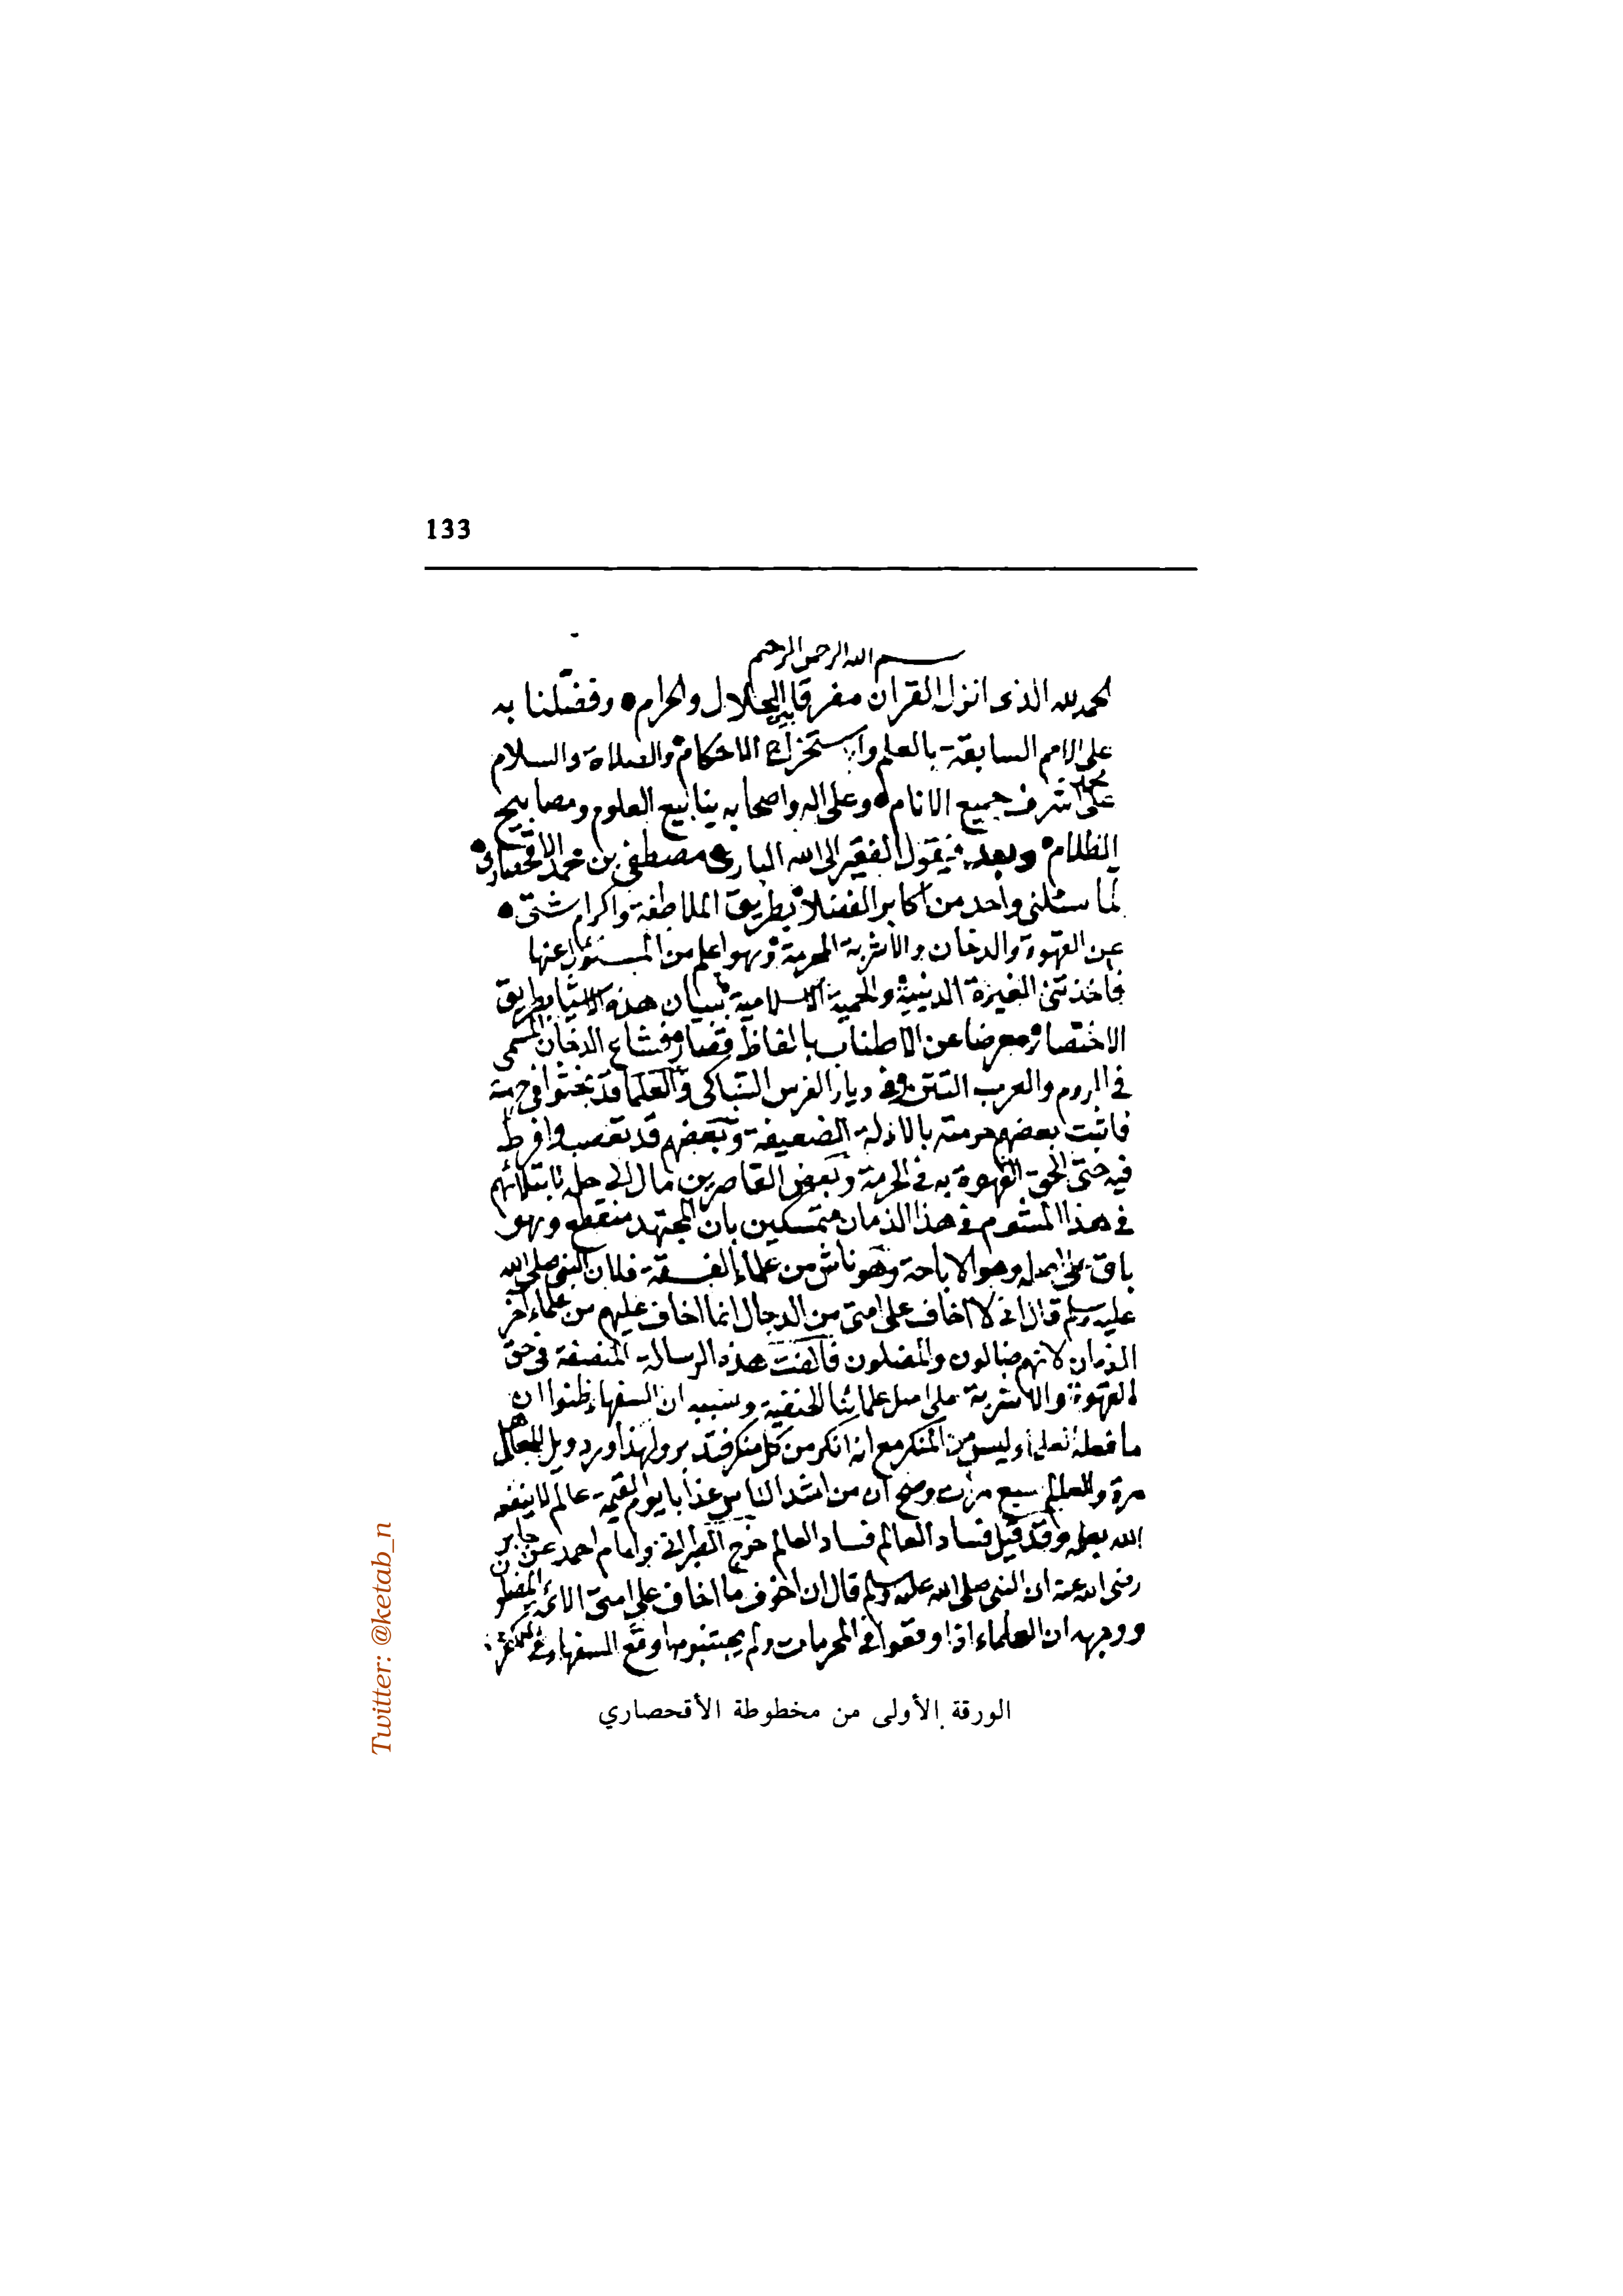 133
بسم الله الرحمن الرحيم
الحمد لله الذى انزل القران مفرقا بين الحلال والحرام وفضّلنا به
على الامم السابقة بالعلم واستخراج الاحكام والصلاة والسلام
على محمد اشرف جميع الانام وعلى اله واصحابه ينابيع العلوم ومصابيح
الظلام وبعد فيقول الفقير الى الله البارى مصطفى بن محمد الاقحصارى
لما سئلنى واحد من اكابر الفضلاء بطريق الملاطفة واكرام شتى
عن القهوة والدخان والاشربة المحرمة وهو اعلم من المسئول عنها
فاخذتنى الغيرة الدينية والحمية الاسلامية ببيان هذه الاشيا بطريق
الاختصار معرضا عن الاطناب بالفاظ قصار فشاع الدخان المسمى
فى الروم والعرب التتن وفى ديار الفرس التنباكى والعلما قد بحثوا فى حرمته
فاثبت بعضهم حرمته بالادلة الضعيفة وبعضهم قد تعصب وافرط
فيه حتى الحق القهوة به فى الحرمة وبعض القاصرين مال الى حله لابتلائهم
فى هذا المشئوم فى هذا الزمان متمسكين بان المجتهد منقطع وهو
باق على اصله وهو الاباحة وهو ناش من علماء الفسقة فلان النبى صلى الله
عليه وسلم قال انى لا اخاف على امتى من الدجال انما اخاف عليهم من علماء اخر
الزمان لانهم ضالون والمضلون فالفت هذه الرسالة المنصفة فى حق
القهوة والاشربة على اصل علمائنا الحنفية وسببه ان السفهاء ظنوا ان
ما فعله العلماء ليس من المنكر مع انه انكر من كل منكر فتدبر ولهذا ورد ويل للجاهل
مرة وللعالم سبع مرات وصح ان من اشد الناس عذابا يوم القيمة عالم لا ينفعه
الله بعلمه وقد قيل فساد العالم فساد العالم خرج الطبرانى وامام احمد عن جابر
رضى الله عنه ان النبى صلى الله عليه وسلم قال ان اخوف ما اخاف على امتى الائمة المضلون
ووجهه ان العلماء اذا وقعوا فى المحرمات ولم يجتنبوها وقع السفهاء فى
الورقة الأولى من مخطوطة الأقحصاري
Twitter: @ketab_n